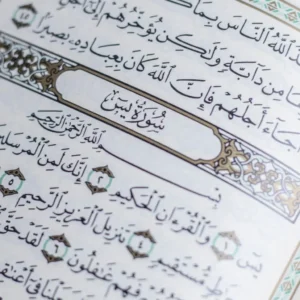 ٱللَّهُ ٱلنَّاسَ بِمَا
مِن دَآبَّةٍ وَلَٰكِن يُؤَخِّرُهُمْ إِلَىٰٓ
جَآءَ أَجَلُهُمْ فَإِنَّ ٱللَّهَ كَانَ بِعِبَادِهِۦ بَصِيرًا ٤٥
سُورَةُ يسٓ
بِسْمِ ٱللَّهِ ٱلرَّحْمَٰنِ ٱلرَّحِيمِ
يسٓ ١ وَٱلْقُرْءَانِ ٱلْحَكِيمِ ٢ إِنَّكَ لَمِنَ
مُّسْتَقِيمٍ ٤ تَنزِيلَ ٱلْعَزِيزِ ٱلرَّحِيمِ ٥
فَهُمْ غَٰفِلُونَ ٦ لَقَدْ حَقَّ